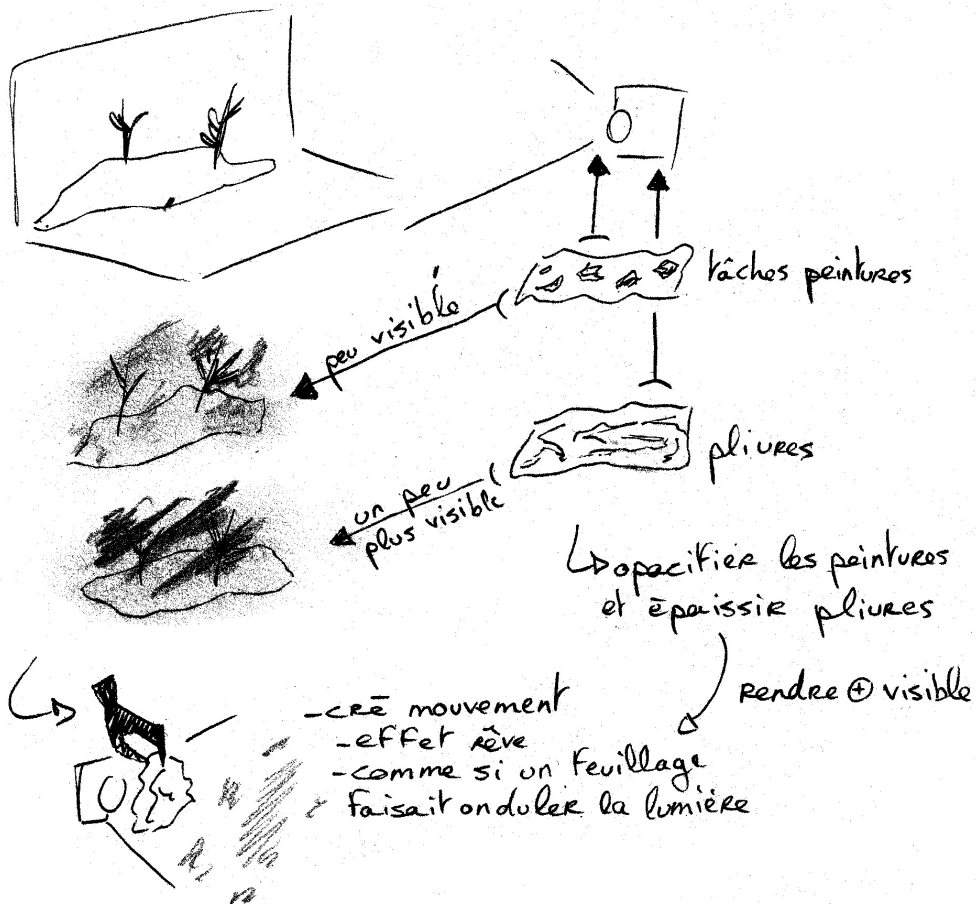 tâches peintures
peu visible
pliures
un peu
plus visible
opacifier les peintures
et épaissir pliures
rendre ⊕ visible
-cré mouvement
-effet rêve
-comme si un feuillage
faisait onduler la lumière